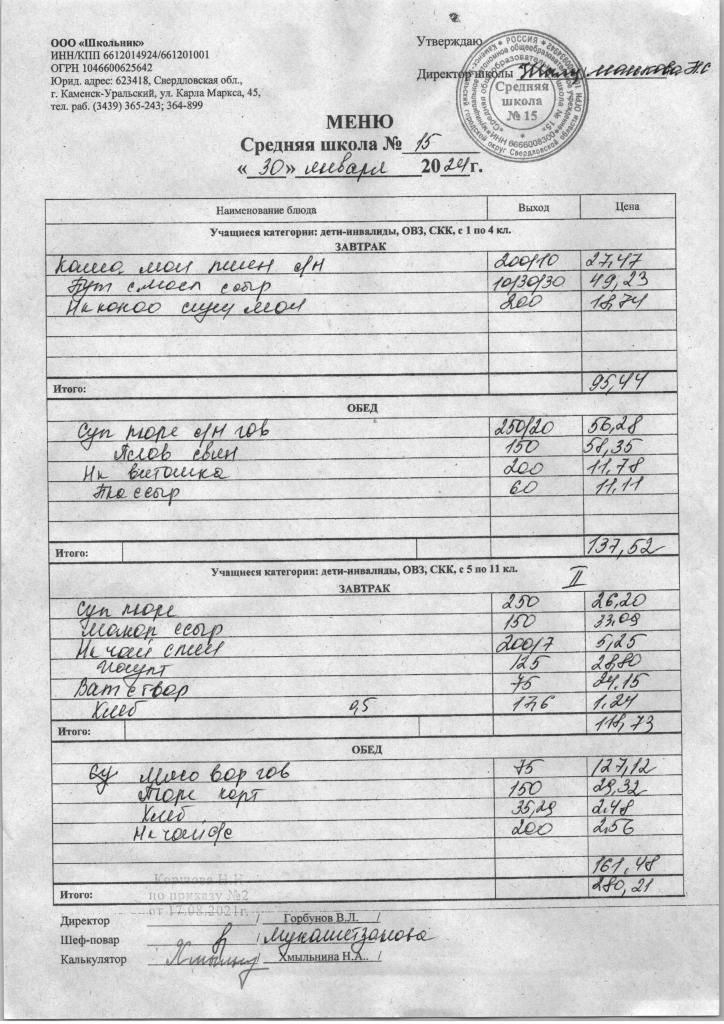 ООО «Школьник»
ИНН/КПП 6612014924/661201001
ОГРН 1046600625642
Юрид. адрес: 623418, Свердловская обл.,
г. Каменск-Уральский, ул. Карла Маркса, 45,
тел. раб. (3439) 365-243; 364-899
Утверждаю
Директор школы
Средняя
школа
№ 15
МЕНЮ
Средняя школа № 15
« 30 » января 2024г.
Наименование блюда Выход Цена
Учащиеся категории: дети-инвалиды, ОВЗ, СКК, с 1 по 4 кл.
ЗАВТРАК
Каша мол пшен с/м 200/10 27,47
Бут с масл сыр 10/30/30 49,23
Нк какао сгущ мол 200 18,74
Итого: 95,44
ОБЕД
Суп пюре с/м гов 250/20 56,28
Плов свин 150 58,35
Нк витошка 200 11,78
60 11,11
Итого: 137,52
Учащиеся категории: дети-инвалиды, ОВЗ, СКК, с 5 по 11 кл. II
ЗАВТРАК
Суп пюре 250 26,20
Макар ссыр 150 33,09
Нк чай 200/7 5,25
Йогурт 125 28,80
Ват с твор 75 24,15
Хлеб 0,5 17,6 1,24
Итого: 118,73
ОБЕД
Мясо вар гов 75 127,12
Пюре карт 150 29,32
Хлеб 35,29 2,48
Нк чай 200 2,56
161,48
Итого: 280,21
по приказу №2
от 17.08.2021г.
Директор / Горбунов В.Л. /
Шеф-повар
Калькулятор / Хмыльнина Н.А.. /